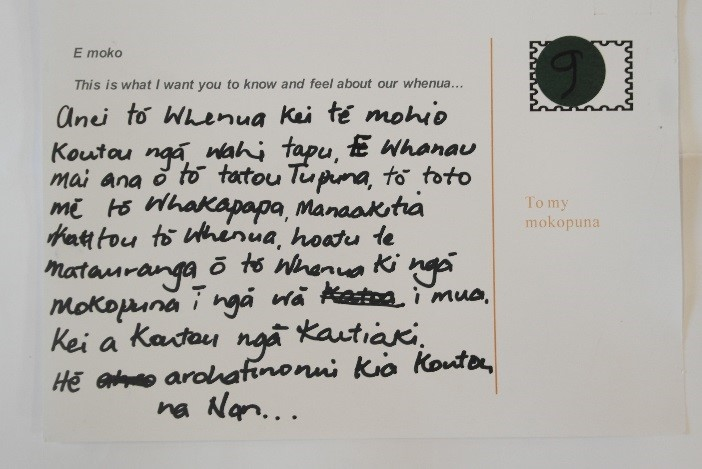 E moko
This is what I want you to know and feel about our whenua...
Anei tō Whenua Kei tē mohio
Koutou ngā wahi tapu, E Whanau
mai ana ō tō tatou Tupuna, tō toto
mē tō Whakapapa, Manaakitia
Koutou tō Whenua, hoatu te
matauranga ō tō Whenua Ki ngā
mokopuna ī ngā wā i mua.
Kei a Koutou ngā Kaitiaki.
Hē arohatinonui Kia Koutou
na Nan...
9
To my
mokopuna